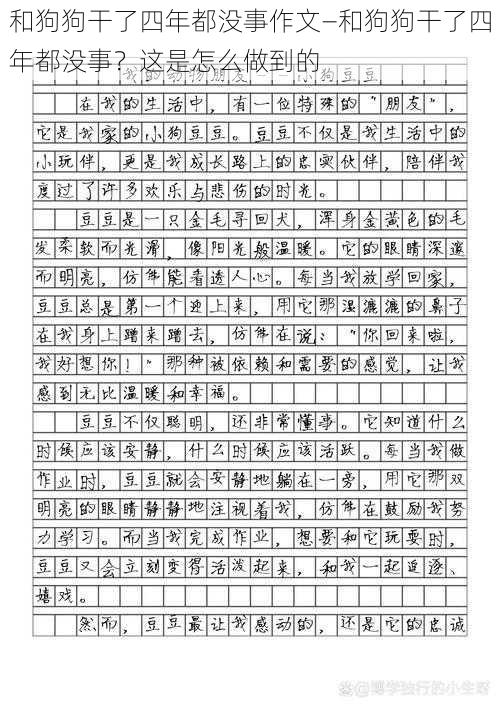 和狗狗干了四年都没事作文–和狗狗干了四
年都没事？这是怎么做到的
我的动物朋友——小狗豆豆
在我的生活中，有一位特殊的“朋友”，
它是我家的小狗豆豆。豆豆不仅是我生活中的
小玩伴，更是我成长路上的忠实伙伴，陪伴我
度过了许多欢乐与悲伤的时光。
豆豆是一只金毛寻回犬，浑身金黄色的毛
发柔软而光滑，像阳光般温暖。它的眼睛深邃
而明亮，仿佛能看透人心。每当我放学回家，
豆豆总是第一个迎上来，用它那湿漉漉的鼻子
在我身上蹭来蹭去，仿佛在说：“你回来啦，
我好想你！”那种被依赖和需要的感觉，让我
感到无比温暖和幸福。
豆豆不仅聪明，还非常懂事。它知道什么
时候应该安静，什么时候应该活跃。每当我做
作业时，豆豆就会安静地躺在一旁，用它那双
明亮的眼睛静静地注视着我，仿佛在鼓励我努
力学习。而当我完成作业，想要和它玩耍时，
豆豆又会立刻变得活泼起来，和我一起追逐、
嬉戏。
然而，豆豆最让我感动的，还是它的忠诚
@博学独行的小生呀